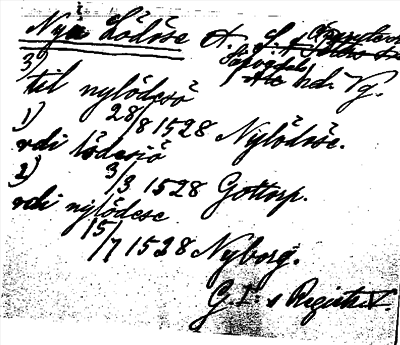 Nya Lödöse
Sävedals
hd. Vg.
3)
til nylödesö
28/8 1528 Nylödöse.
1)
vdi lödesiö
3/3 1528 Gottorp.
2)
vdi nylödese
15/7 1528 Nyborg.
G I:s Registr. V.